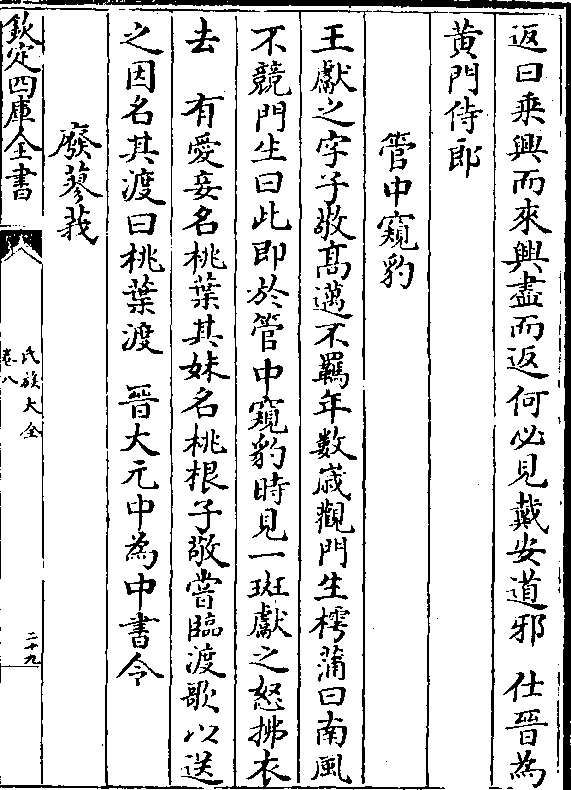 返曰乘興而來興盡而返何必見戴安道邪　仕晉為
黄門侍郎
管中窺豹
王獻之字子敬髙邁不羈年數歲觀門生樗蒲曰南風
不競門生曰此即於管中窺豹時見一斑獻之怒拂衣
去　有愛妾名桃葉其妹名桃根子敬嘗臨渡歌以送
之因名其渡曰桃葉渡　晉大元中為中書令
廢蓼莪
欽定四庫全書
氏族大全
卷八
二十九